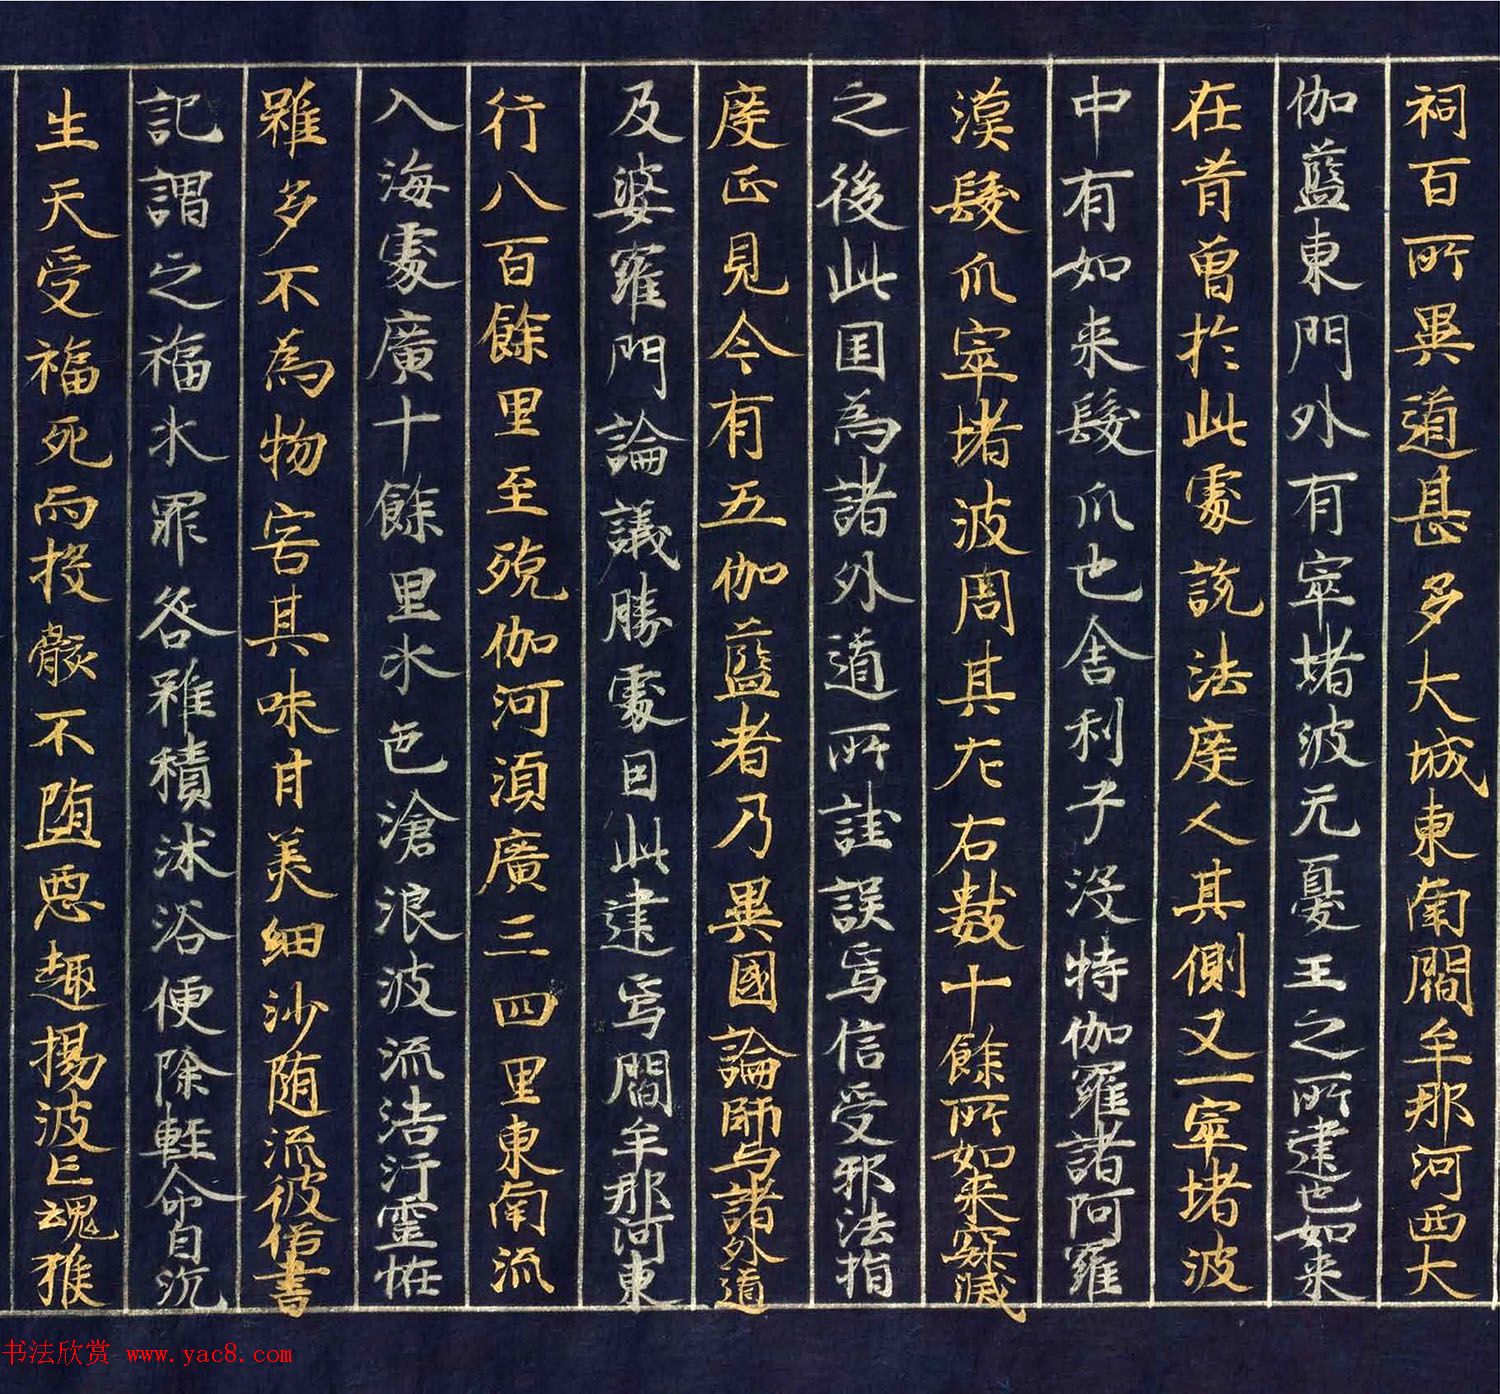 祠百所異道甚多大城東南閻牟那河西大
伽藍東門外有窣堵波无憂王之所建也如来
在昔曾於此處說法度人其側又一窣堵波
中有如来髮爪也舍利子没特伽羅諸阿羅
漢髮爪窣堵波周其左右數十餘所如来寂滅
之後此国為諸外道所詿誤焉信受邪法捐
廢正見今有五伽藍者乃異國論師与諸外道
及婆羅門論議勝處因此建焉閻牟那河東
行八百餘里至殑伽河湏廣三四里東南流
入海處廣十餘里水色滄浪波流浩汗靈怪
雖多不為物害其味甘美細沙随流彼俗書
記謂之福水罪咎雖積沐浴便除輕命自沉
生天受福死而投骸不堕惡趣揚波亡魂獲
书法欣赏 www.yac8.com